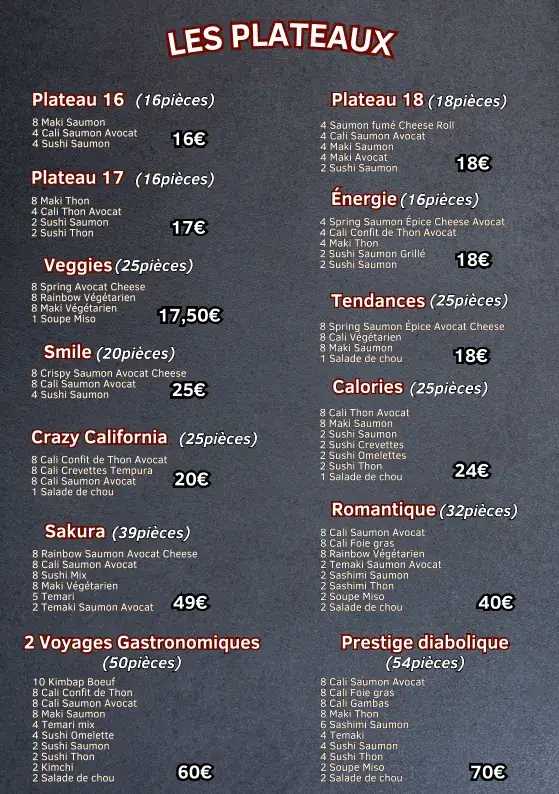 LES PLATEAUX
Plateau 16 (16pièces)
8 Maki Saumon
4 Cali Saumon Avocat
4 Sushi Saumon
16€
Plateau 17 (16pièces)
8 Maki Thon
4 Cali Thon Avocat
2 Sushi Saumon
2 Sushi Thon
17€
Veggies (25pièces)
8 Spring Avocat Cheese
8 Rainbow Végétarien
8 Maki Végétarien
1 Soupe Miso
17,50€
Smile (20pièces)
8 Crispy Saumon Avocat Cheese
8 Cali Saumon Avocat
4 Sushi Saumon
25€
Crazy California (25pièces)
8 Cali Confit de Thon Avocat
8 Cali Crevettes Tempura
8 Cali Saumon Avocat
1 Salade de chou
20€
Sakura (39pièces)
8 Rainbow Saumon Avocat Cheese
8 Cali Saumon Avocat
8 Sushi Mix
8 Maki Végétarien
5 Temari
2 Temaki Saumon Avocat
49€
2 Voyages Gastronomiques
(50pièces)
10 Kimbap Boeuf
8 Cali Confit de Thon
8 Cali Saumon Avocat
8 Maki Saumon
4 Temari mix
4 Sushi Omelette
2 Sushi Saumon
2 Sushi Thon
2 Kimchi
2 Salade de chou
60€
Plateau 18 (18pièces)
4 Saumon fumé Cheese Roll
4 Cali Saumon Avocat
4 Maki Saumon
4 Maki Avocat
2 Sushi Saumon
18€
Énergie (16pièces)
4 Spring Saumon Épice Cheese Avocat
4 Cali Confit de Thon Avocat
4 Maki Thon
2 Sushi Saumon Grillé
2 Sushi Saumon
18€
Tendances (25pièces)
8 Spring Saumon Épice Avocat Cheese
8 Cali Végétarien
8 Maki Saumon
1 Salade de chou
18€
Calories (25pièces)
8 Cali Thon Avocat
8 Maki Saumon
2 Sushi Saumon
2 Sushi Crevettes
2 Sushi Omelettes
2 Sushi Thon
1 Salade de chou
24€
Romantique (32pièces)
8 Cali Saumon Avocat
8 Cali Foie gras
8 Rainbow Végétarien
2 Temaki Saumon Avocat
2 Sashimi Saumon
2 Sashimi Thon
2 Soupe Miso
2 Salade de chou
40€
Prestige diabolique
(54pièces)
8 Cali Saumon Avocat
8 Cali Foie gras
8 Cali Gambas
8 Maki Thon
6 Sashimi Saumon
4 Temaki
4 Sushi Saumon
4 Sushi Thon
2 Soupe Miso
2 Salade de chou
70€